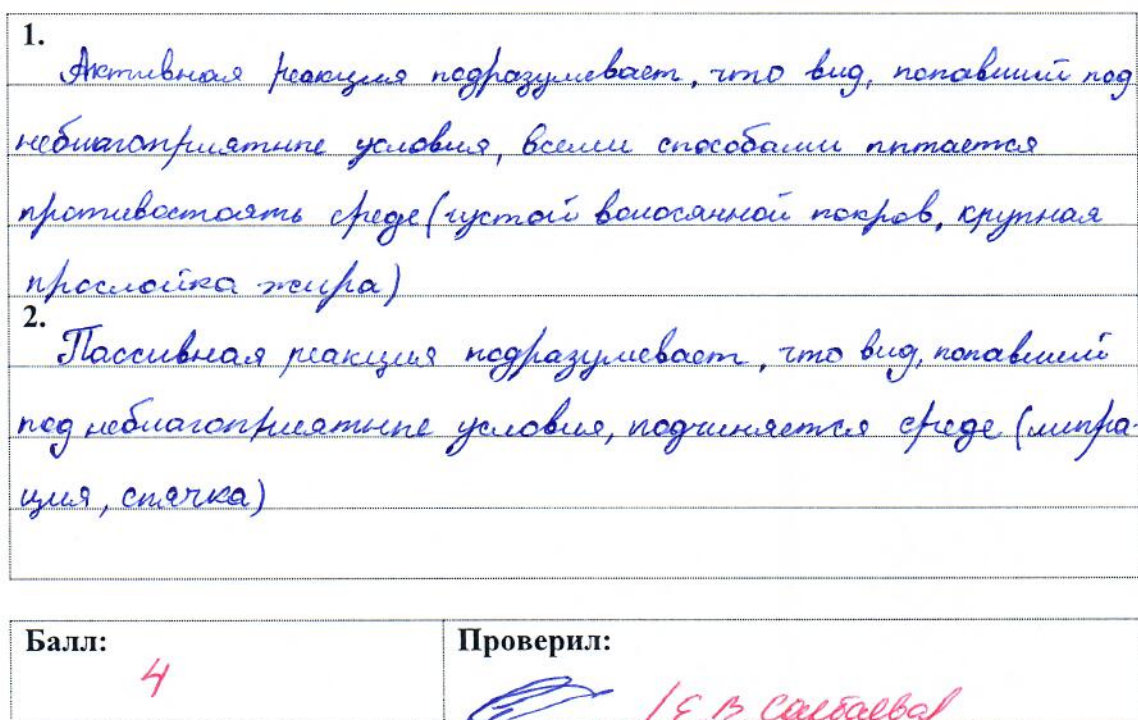 1.
Активная реакция подразумевает, что вид, попавший под
неблагоприятные условия, всеми способами пытается
противостоять среде (густой волосяной покров, крупная
прослойка жира)
2.
Пассивная реакция подразумевает, что вид, попавший
под неблагоприятные условия, подчиняется среде (мигра-
ция, спячка)
Балл: Проверил:
4 / Е В